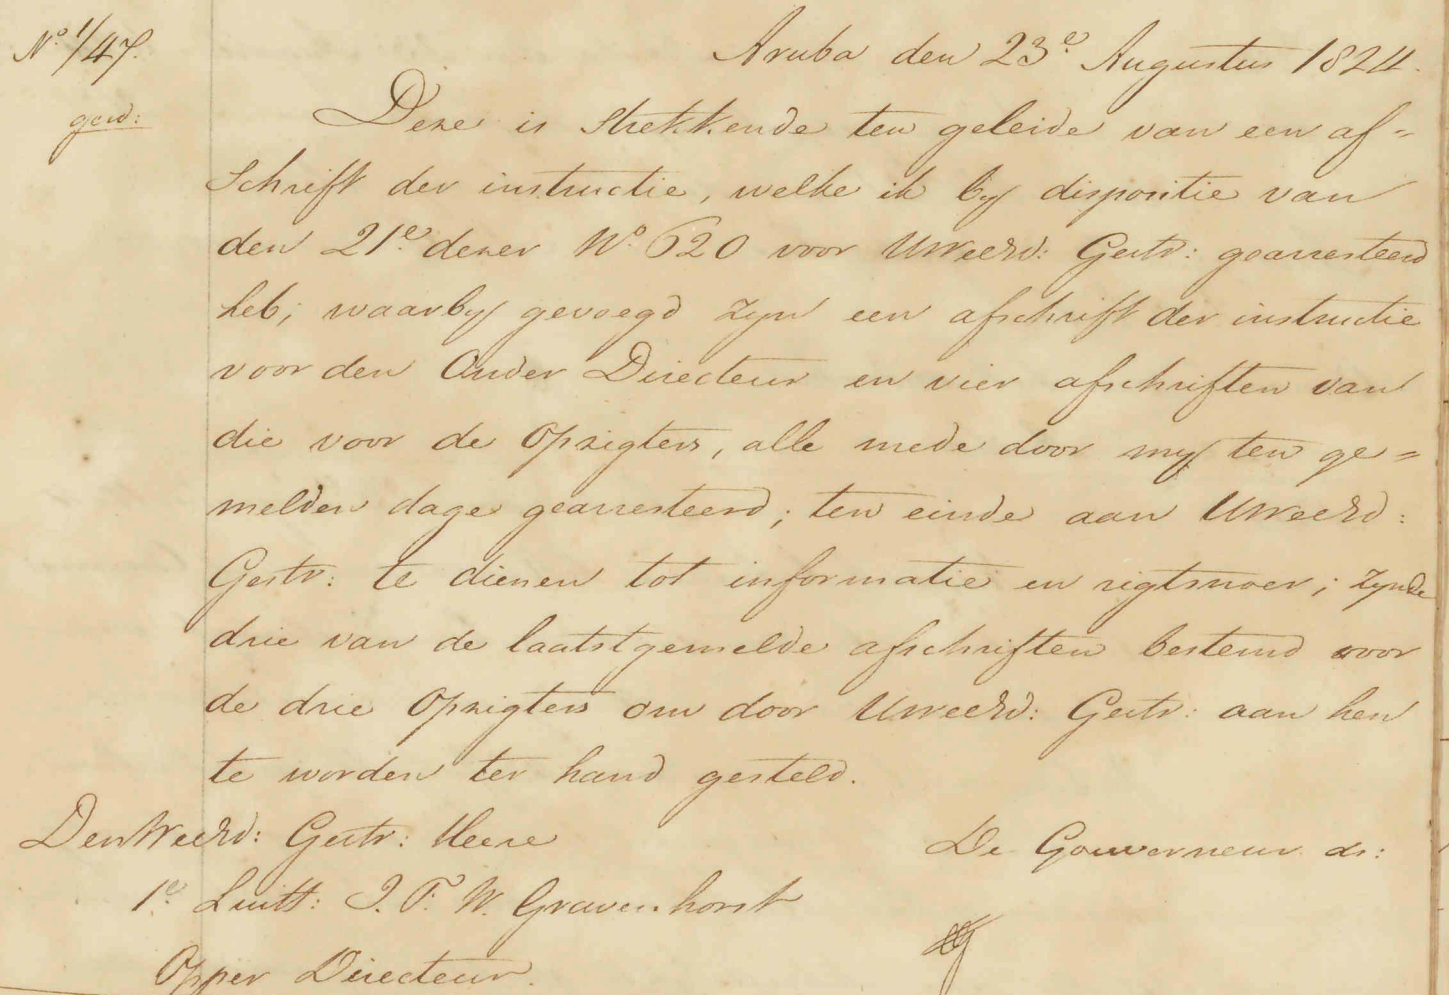 No. 1/47.
Aruba den 23e. Augustus 1824.
gew:
Deze is strekkende ten geleide van een af=
schrift der instructie, welke ik by dispositie van
den 21e. dezer No. 620 voor UWeerd: Gestr: gearresteerd
heb; waarby gevoegd zyn een afschrift der instructie
voor den Onder Directeur en vier afschriften van
die voor de Opzigters, alle mede door my ten ge=
melden dage gearresteerd; ten einde aan UWeerd:
Gestr: te dienen tot informatie en rigtsnoer; zynde
drie van de laatstgemelde afschriften bestemd voor
de drie Opzigters om door UWeerd: Gestr: aan hen
te worden ter hand gesteld.
Den Weerd: Gestr: Heere
De Gouverneur ds:
1e. Luitt: J. F. W. Gravenhorst
Opper Directeur.